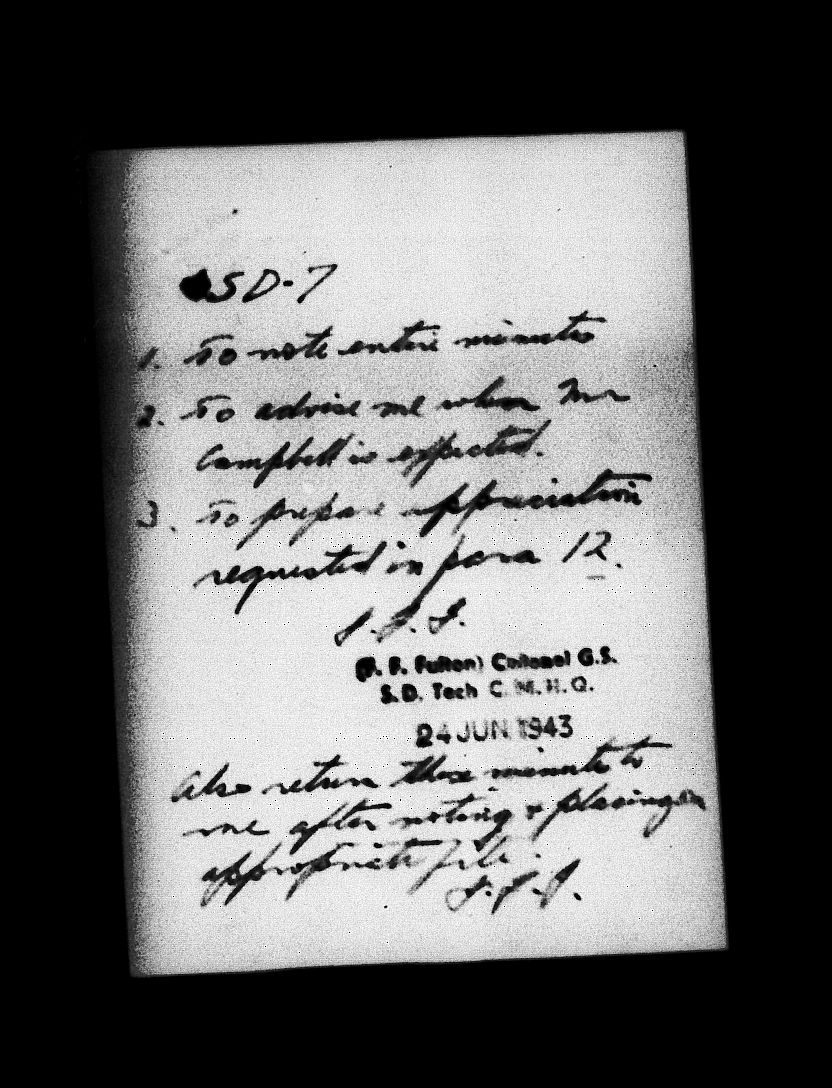 SD-7
1. To note entire minutes
2. To advise me when Mr
Campbell is expected.
3. To prepare appreciation
requested in para 12.
(F. F. Fulton) Colonel G.S.
S.D. Tech C.M.H.Q.
24 JUN 1943
Also return these minutes to
me after noting & placing on
appropriate file.